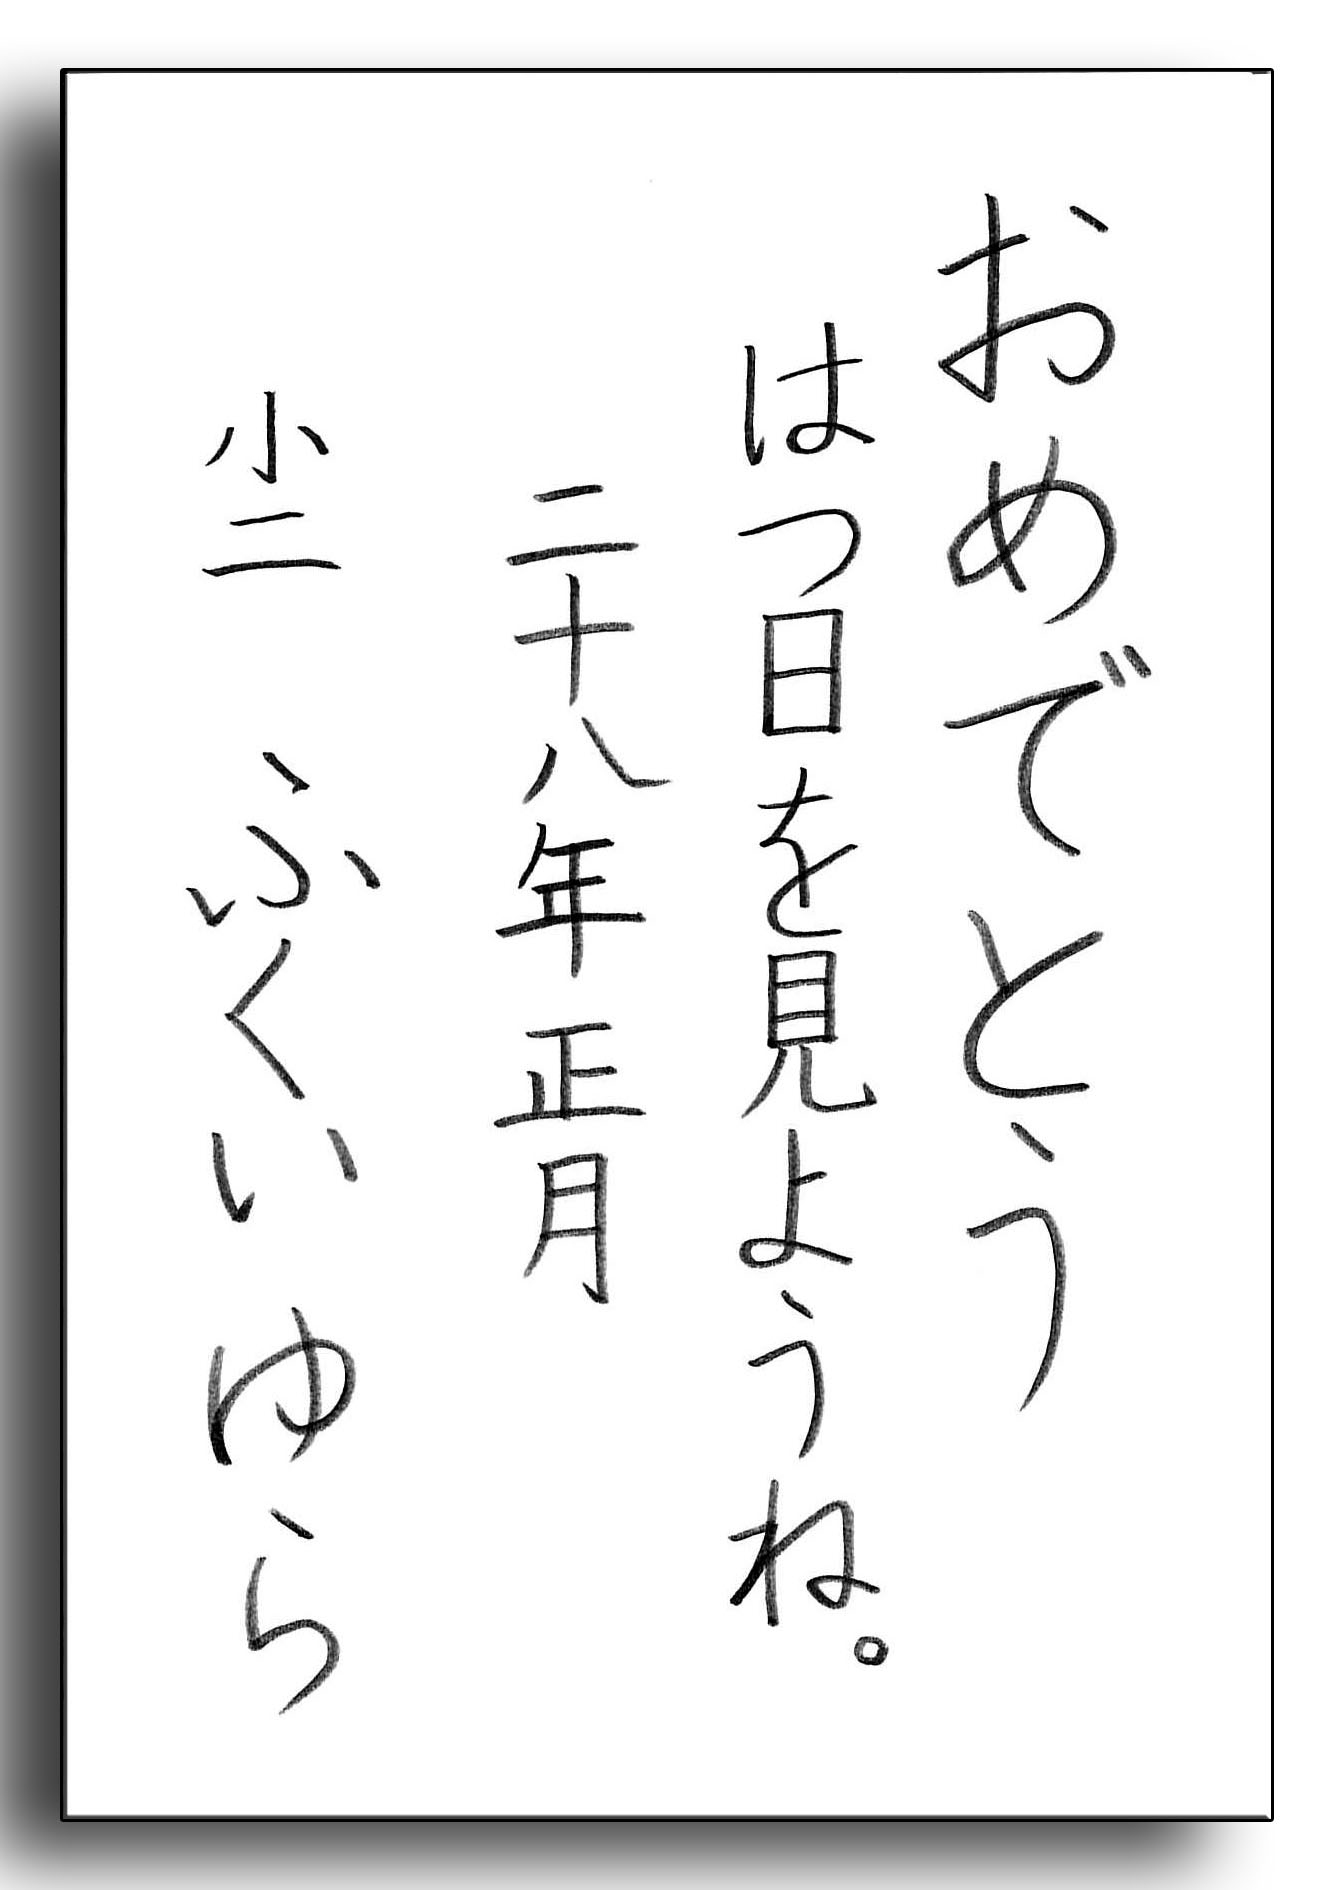 おめでとう
はつ日を見ようね。
二十八年正月
小二 ふくい ゆら